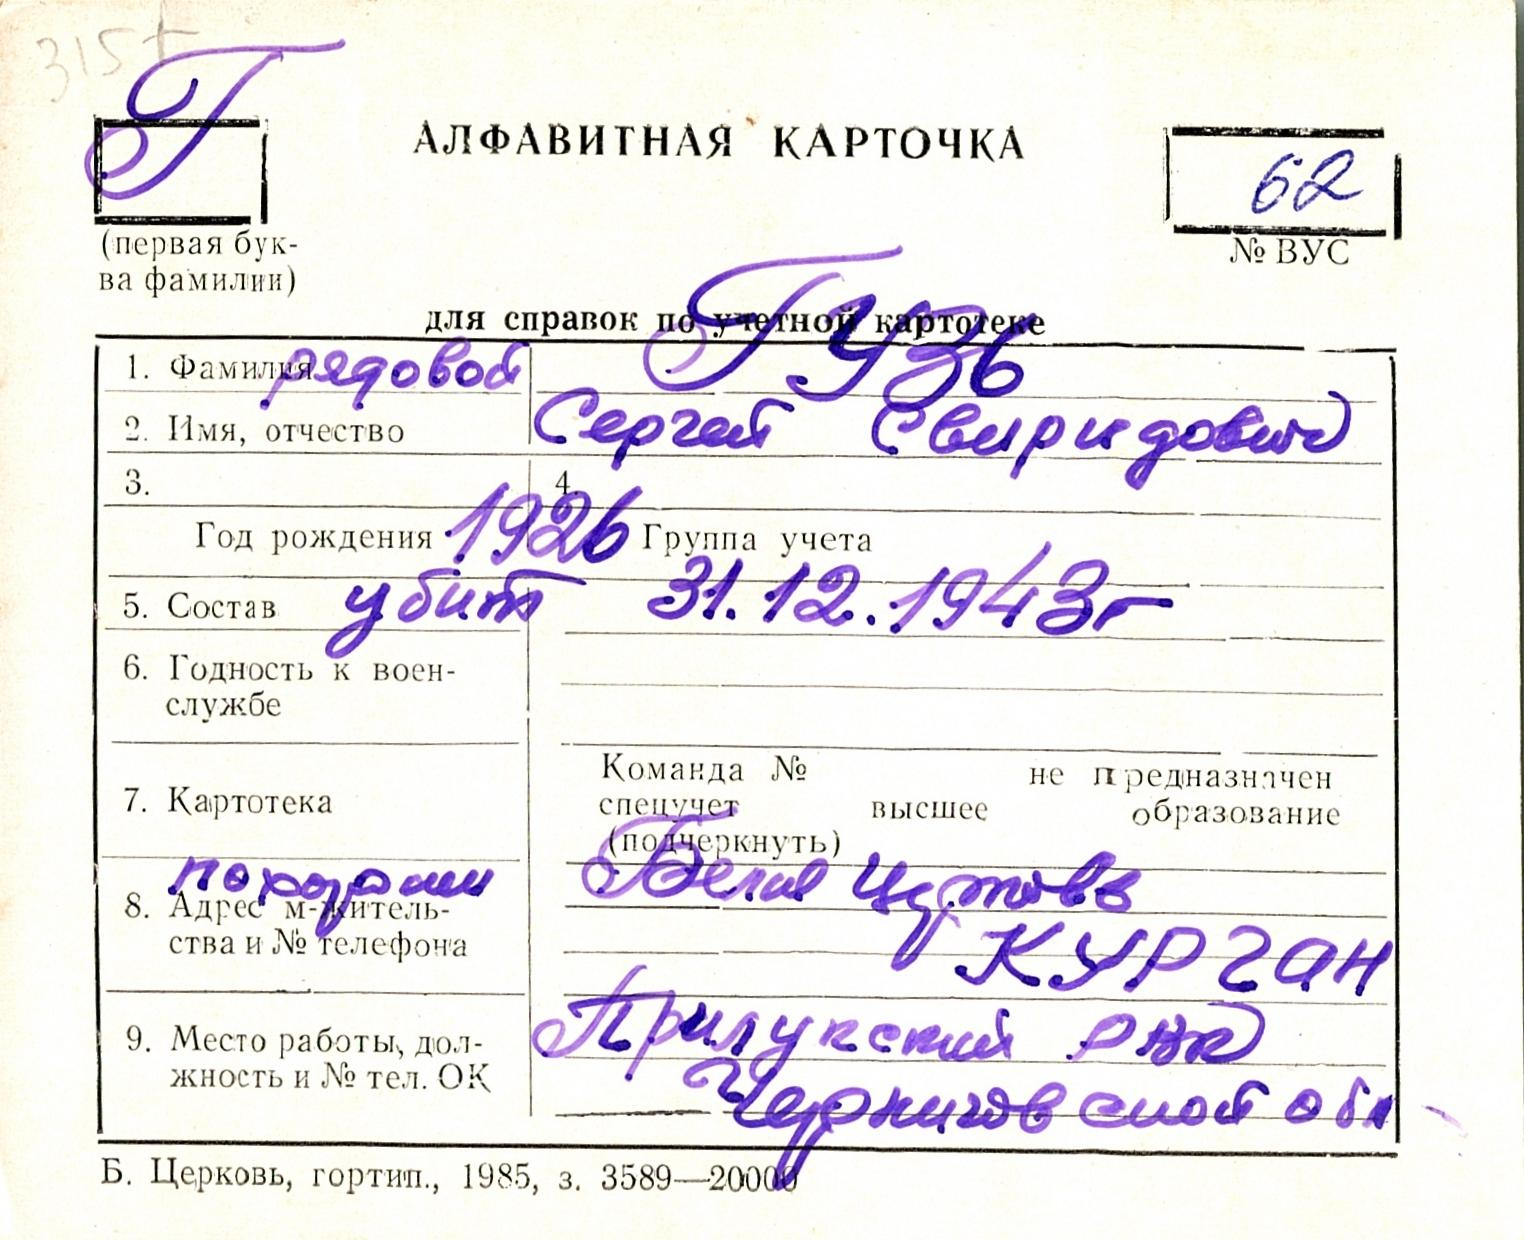 315т
Г
АЛФАВИТНАЯ КАРТОЧКА
62
(первая бук-
ва фамилии)
№ ВУС
для справок по учетной картотеке
1. Фамилия рядовой Гузь
2. Имя, отчество Сергей Свиридович
3. 4.
Год рождения 1926 Группа учета
5. Состав убит 31.12.1943г
6. Годность к воен-
службе
Команда № не предназначен
7. Картотека спецучет высшее образование
(подчеркнуть)
похоронен Белая Церковь
8. Адрес м-житель-
ства и № телефона КУРГАН
9. Место работы, дол- Прилукский РВК
жность и № тел. ОК Черниговской обл
Б. Церковь, гортип., 1985, з. 3589—20000